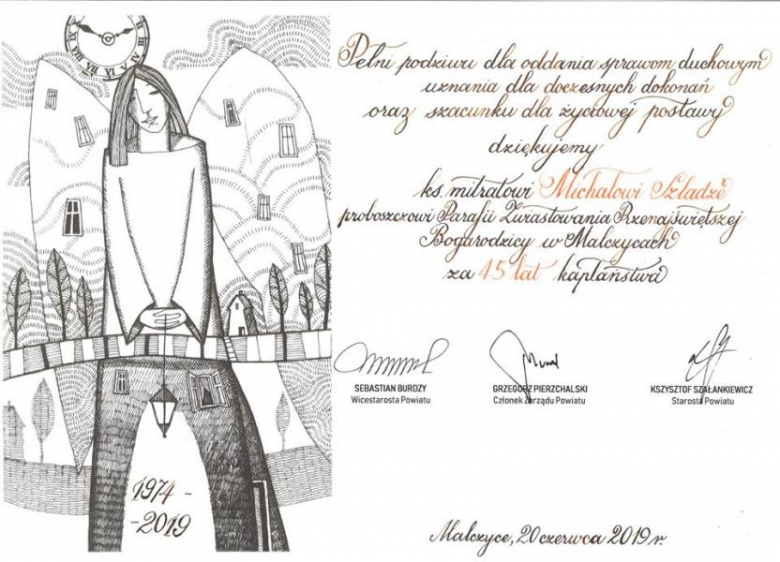 Pełni podziwu dla oddania sprawom duchowym
uznania dla doczesnych dokonań
oraz szacunku dla życiowej postawy
dziękujemy
ks. mitratowi Michałowi Szladze
proboszczowi Parafii Zwiastowania Przenajświętszej
Bogarodzicy w Malczycach
za 45 lat kapłaństwa
SEBASTIAN BURDZY
Wicestarosta Powiatu
GRZEGORZ PIERZCHALSKI
Członek Zarządu Powiatu
KSZYSZTOF SZAŁANKIEWICZ
Starosta Powiatu
1974 -
-2019
Malczyce, 20 czerwca 2019 r.